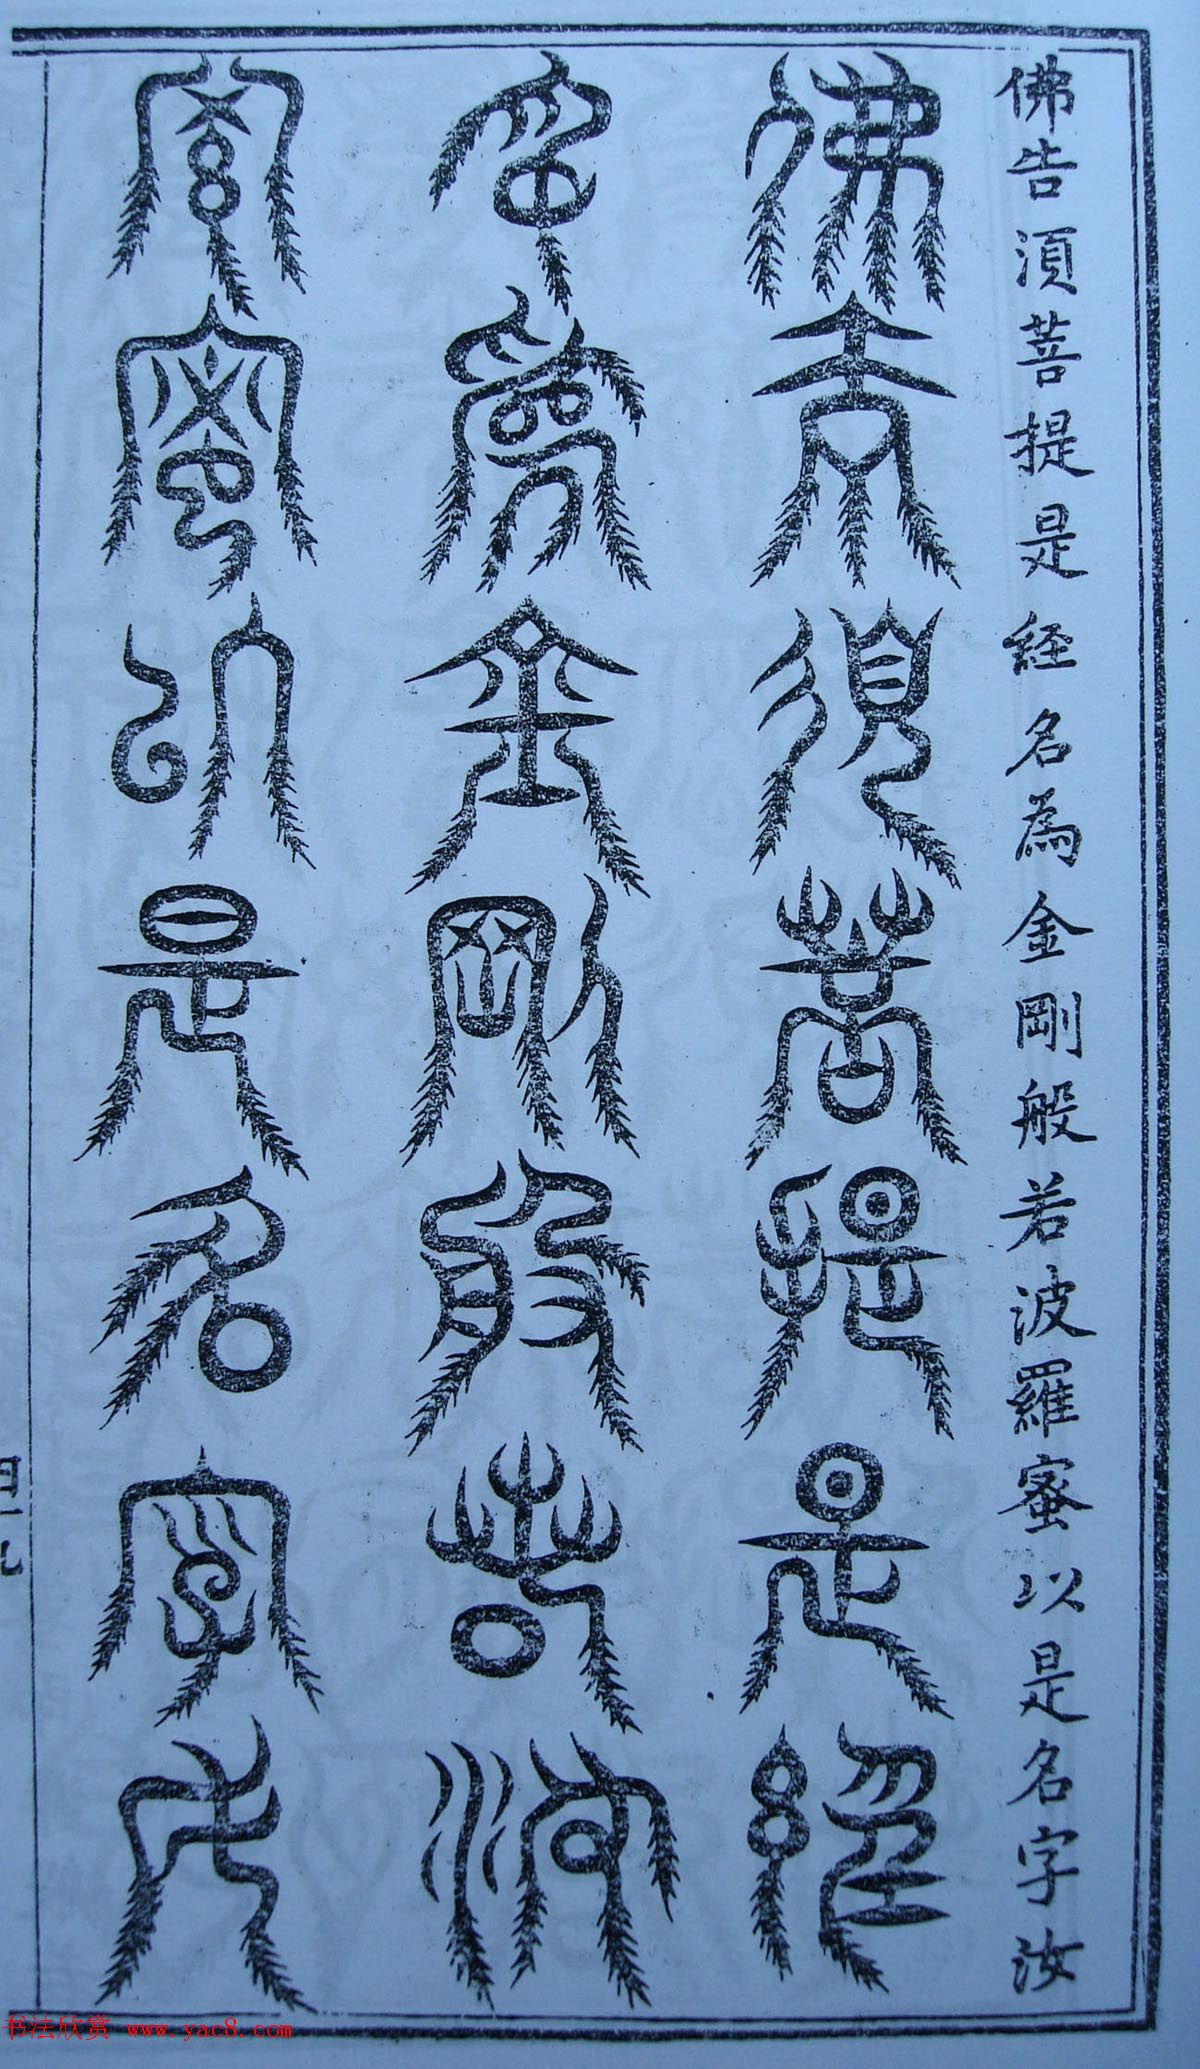 佛告湏菩提是経名為金剛般若波羅蜜以是名字汝
佛告須菩提是經
名為金剛般若波
羅蜜以是名字汝
书法欣赏 www.yac8.com